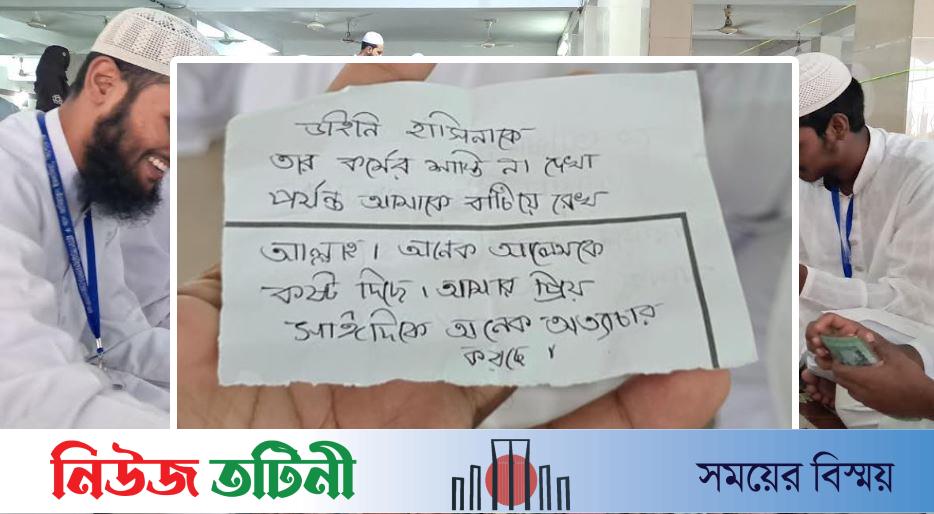 ডাইনি হাসিনাকে
তার কর্মের শাস্তি না দেখা
পর্যন্ত আমাকে বাচিয়ে রেখ
আল্লাহ। অনেক আলেমকে
কষ্ট দিছে। আমার প্রিয়
সাঈদিকে অনেক অত্যাচার
করছে।
নিউজ তটিনী
সময়ের বিস্ময়